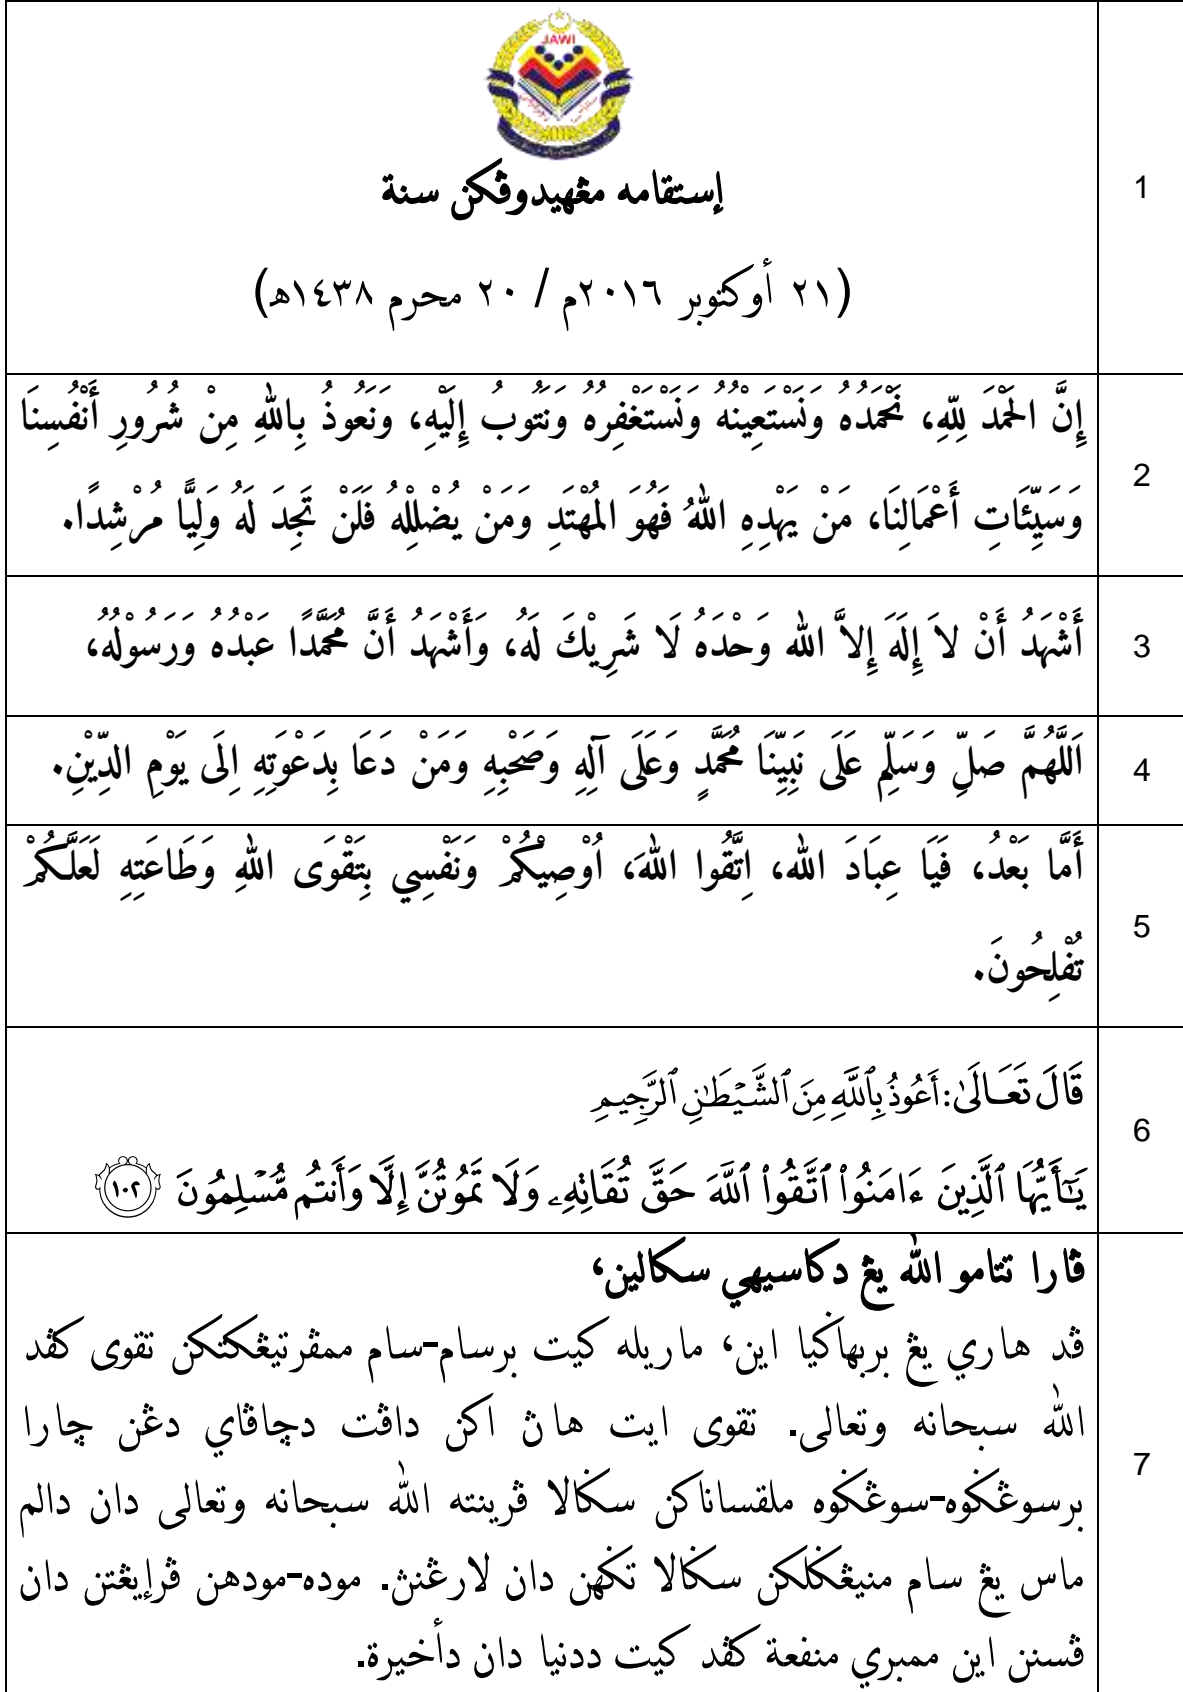 JAWI
إستقامه مڠهيدوڤكن سنة
1
(٢١ أوكتوبر ٢٠١٦م / ٢٠ محرم ١٤٣٨ه)
إِنَّ الحَمْدَ لِلّهِ، نَحْمَدُهُ وَنَسْتَعِيْنُهُ وَنَسْتَغْفِرُهُ وَنَتُوبُ إِلَيْهِ، وَنَعُوذُ بِاللهِ مِنْ شُرُورِ أَنْفُسِنَا
2
وَسَيِّئَاتِ أَعْمَالِنَا، مَنْ يَهْدِهِ اللهُ فَهُوَ المُهْتَدِ وَمَنْ يُضْلِلْهُ فَلَنْ تَجِدَ لَهُ وَلِيًّا مُرْشِدًا.
أَشْهَدُ أَنْ لاَ إِلَهَ إِلاَّ الله وَحْدَهُ لَا شَرِيْكَ لَهُ، وَأَشْهَدُ أَنَّ مُحَمَّدًا عَبْدُهُ وَرَسُوْلُهُ،
3
اَللَّهُمَّ صَلِّ وَسَلِّم عَلَى نَبِيِّنَا مُحَمَّدٍ وَعَلَى آلِهِ وَصَحْبِهِ وَمَنْ دَعَا بِدَعْوَتِهِ اِلَى يَوْمِ الدِّيْنِ.
4
أَمَّا بَعْدُ، فَيَا عِبَادَ الله، اِتَّقُوا اللهَ، اُوْصِيْكُمْ وَنَفْسِي بِتَقْوَى اللهِ وَطَاعَتِهِ لَعَلَّكُمْ
5
تُفْلِحُونَ.
قَالَ تَعَالَىٰ: أَعُوذُ بِٱللَّهِ مِنَ ٱلشَّيْطَٰنِ ٱلرَّجِيمِ
6
يَٰٓأَيُّهَا ٱلَّذِينَ ءَامَنُوا۟ ٱتَّقُوا۟ ٱللَّهَ حَقَّ تُقَاتِهِۦ وَلَا تَمُوتُنَّ إِلَّا وَأَنتُم مُّسْلِمُونَ ١٠٢
ڤارا تتامو الله يڠ دكاسيهي سكالين،
ڤد هاري يڠ بربهاݢيا اين، ماريله كيت برسام-سام ممڤرتيڠكتكن تقوى كڤد
الله سبحانه وتعالى. تقوى ايت هاڽ اكن داڤت دچاڤاي دڠن چارا
7
برسوڠݢوه-سوڠݢوه ملقساناكن سݢالا ڤرينته الله سبحانه وتعالى دان دالم
ماس يڠ سام منيڠݢلكن سݢالا تݢهن دان لارڠنڽ. موده-مودهن ڤرإيڠتن دان
ڤسنن اين ممبري منفعة كڤد كيت ددنيا دان دأخيرة.